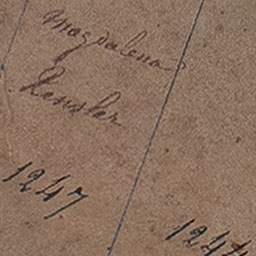 Magdalena
Kensler
1247
124